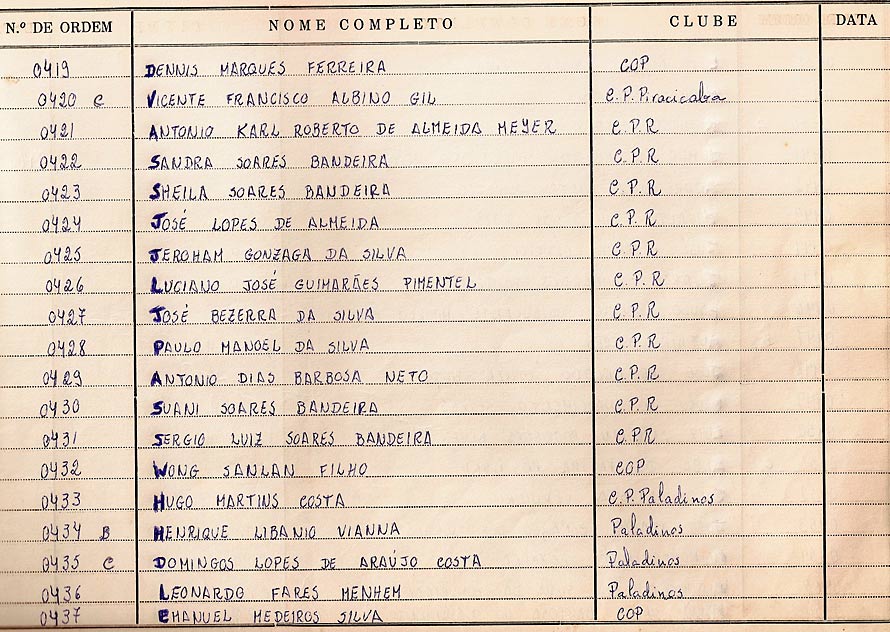 N.º DE ORDEM NOME COMPLETO CLUBE DATA
0419 DENNIS MARQUES FERREIRA COP
0420 C VICENTE FRANCISCO ALBINO GIL C.P.Piracicaba
0421 ANTONIO KARL ROBERTO DE ALMEIDA MEYER C.P.R
0422 SANDRA SOARES BANDEIRA C.P.R
0423 SHEILA SOARES BANDEIRA C.P.R
0424 JOSÉ LOPES DE ALMEIDA C.P.R
0425 JEROHAM GONZAGA DA SILVA C.P.R
0426 LUCIANO JOSÉ GUIMARÃES PIMENTEL C.P.R
0427 JOSÉ BEZERRA DA SILVA C.P.R
0428 PAULO MANOEL DA SILVA C.P.R
0429 ANTONIO DIAS BARBOSA NETO C.P.R
0430 SUANI SOARES BANDEIRA C.P.R
0431 SERGIO LUIZ SOARES BANDEIRA C.PR
0432 WONG SANLAN FILHO COP
0433 HUGO MARTINS COSTA C.P.Paladinos
0434 B HENRIQUE LIBANIO VIANNA Paladinos
0435 C DOMINGOS LOPES DE ARAÚJO COSTA Paladinos
0436 LEONARDO FARES MENHEM Paladinos
0437 EMANUEL MEDEIROS SILVA COP